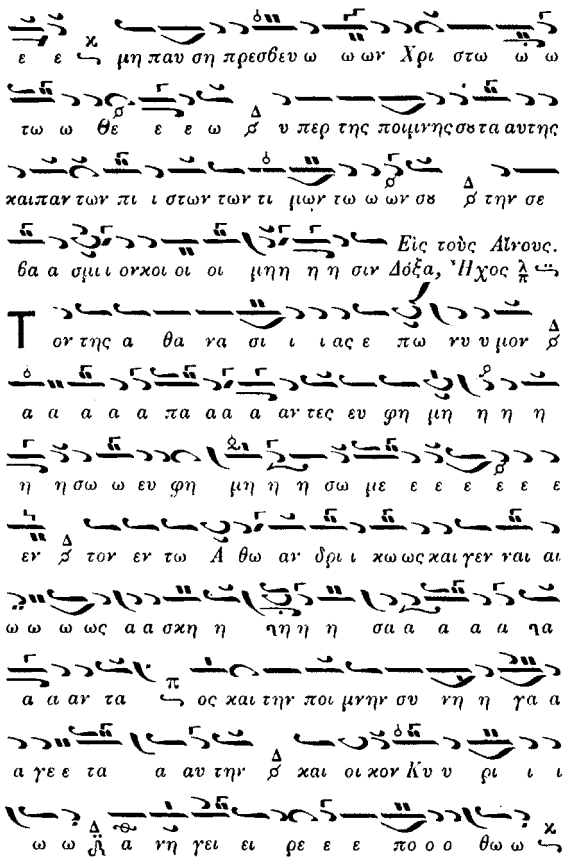 ε ε μη παυ ση πρεσβευ ω ω ων Χρι στω ω ω
τω ω Θε ε ε ε ω υ περ της ποιμνης σου τα αυτης
και παν των πι ι στων των τι μων τω ω ων σου την σε
βα α σμι ι ον κοι οι οι μη η η η σιν Εἰς τοὺς Αἴνους. Δόξα, Ἦχος
Τον της α θα να σι ι ι ας ε πω νυ υ μον
α α α α α πα α α α αν τες ευ φη μη η η η
η η σω ω ευ φη μη η η σω με ε ε ε ε ε ε
εν τον εν τω Α θω αν δρι ι κω ως και γεν ναι αι
ω ω ω ως α α σκη η η η η σα α α α α
α α αν τα ος και την ποι μνην συ νη η γα α
α γε ε τα α αυ την και οι κον Κυ υ ρι ι ι
ω ω α νη γει ει ρε ε ε πο ο ο θω ω